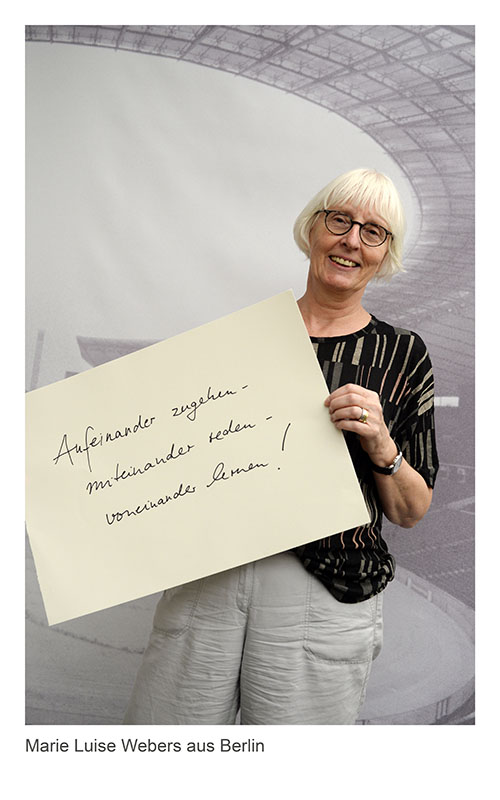 Aufeinander zugehen -
miteinander reden -
voneinander lernen!
Marie Luise Webers aus Berlin